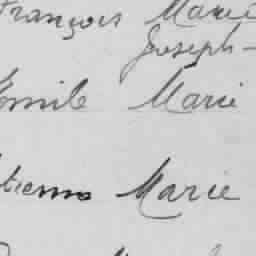 François Marie
Joseph-
Emile Marie
Marie